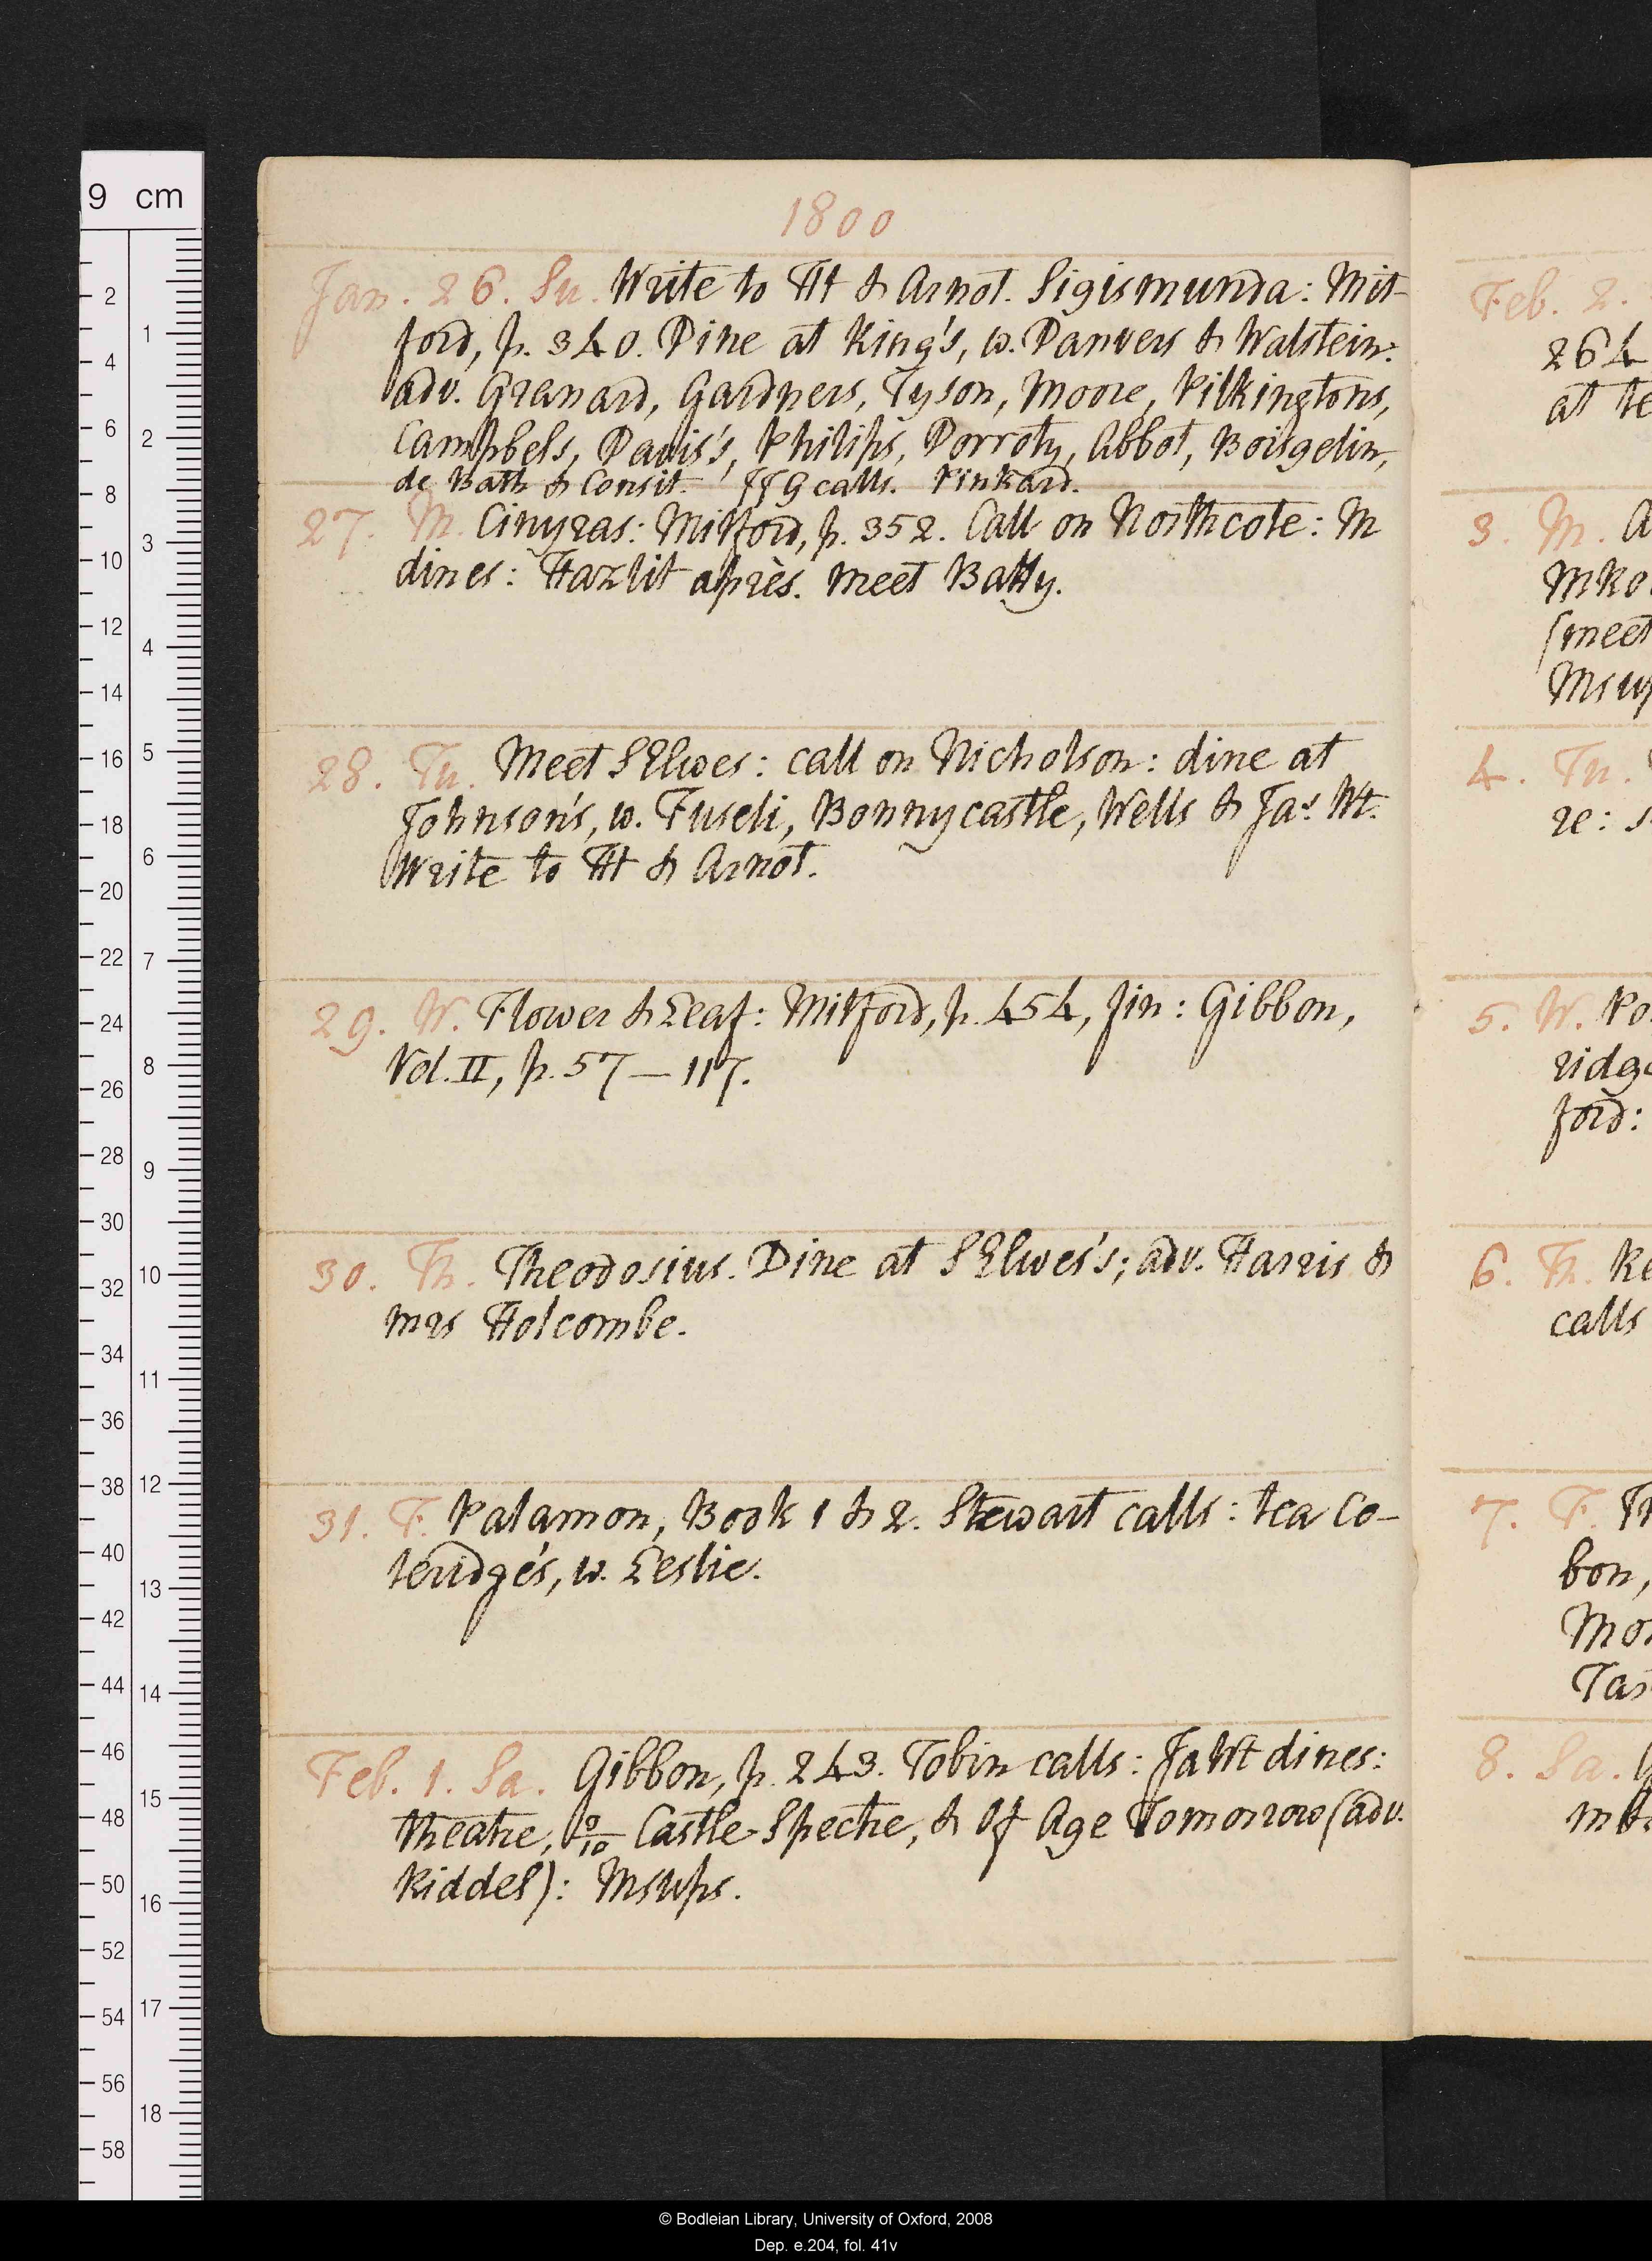 1800
Jan. 26. Su. Write to Ht & Arnot. Sigismunda: Mit-
ford, p. 340. Dine at King's, w. Danvers & Walstein:
adv. Granard, Gardners, Tyson, Moore, Pilkingtons,
Campbels, Davis's, Philips, Dorroty, Abbot, Boisgelin,
de Bath & Consit. JJG calls. Pinkard.
27. M. Cinyras: Mitford, p. 352. Call on Northcote: M
dines: Hazlit après. Meet Batty.
28. Tu. Meet SElwes: call on Nicholson: dine at
Johnson's, w. Fuseli, Bonnycastle, Wells & Jas Wt.
Write to Ht & Arnot.
29. W. Flower & Leaf: Mitford, p. 454, fin: Gibbon,
Vol. II, p. 57—117.
30. Th. Theodosius. Dine at SElwes's; adv. Harris &
mrs Holcombe.
31. F. Palamon, Book 1 & 2. Stewart calls: tea Co-
leridge's, w. Leslie.
Feb. 1. Sa. Gibbon, p. 243. Tobin calls: JaWt dines:
theatre, 9/10 Castle-Spectre, & Of Age Tomorrow (adv.
Kiddel): Msups.
Feb. 2.
264
at te
3. M. A
MKo
(meet
Msup
4. Tu.
re: s
5. W. Po
ridge
ford:
6. Th. Ke
calls
7. F. Th
bon,
Mo
Tas
8. Sa.
9 cm
2
4
6
8
10
12
14
16
18
20
22
24
26
28
30
32
34
36
38
40
42
44
46
48
50
52
54
56
58
1
2
3
4
5
6
7
8
9
10
11
12
13
14
15
16
17
18
© Bodleian Library, University of Oxford, 2008
Dep. e.204, fol. 41v